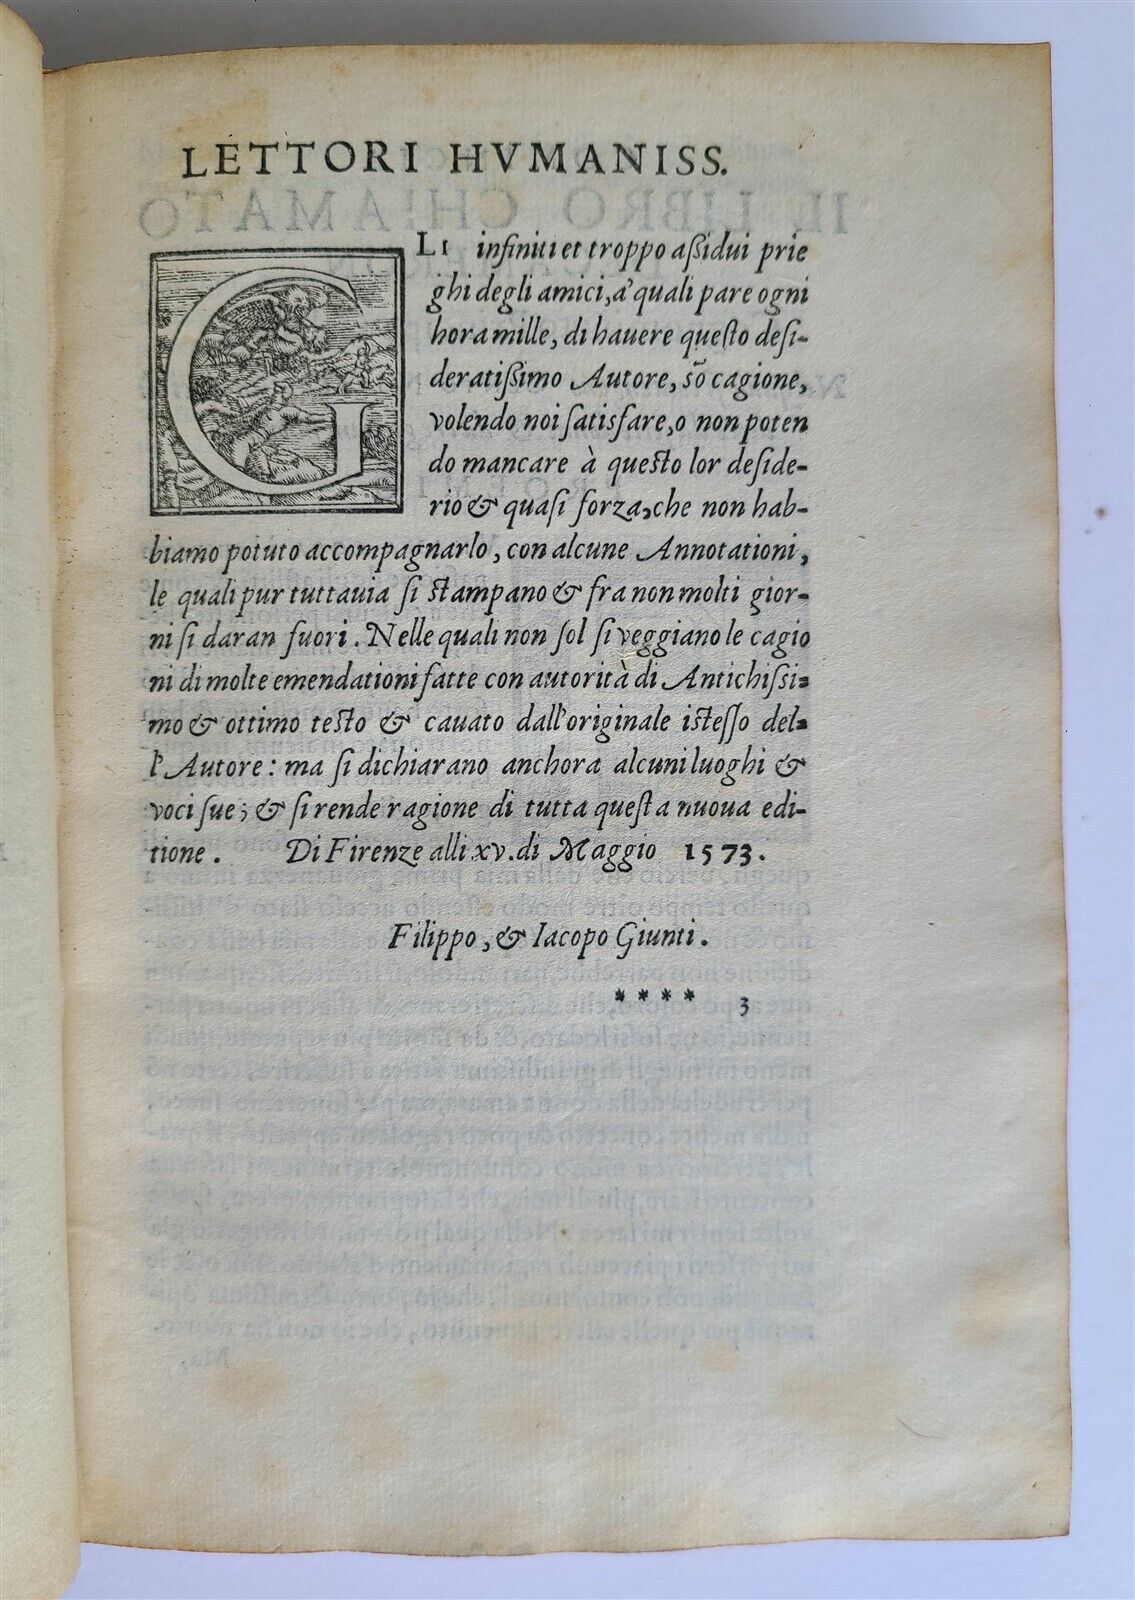 LETTORI HVMANISS.
GLI infiniti et troppo aßidui prie
ghi degli amici, a' quali pare ogni
hora mille, di hauere questo desi-
deratißimo Autore, sõ cagione,
volendo noi satisfare, o non poten
do mancare à questo lor deside-
rio & quasi forza, che non hab-
biamo potuto accompagnarlo, con alcune Annotationi,
le quali pur tuttauia si stampano & fra non molti gior-
ni si daran fuori. Nelle quali non sol si veggiano le cagio
ni di molte emendationi fatte con autorità di Antichissi-
mo & ottimo testo & cauato dall'originale istesso del-
l'Autore: ma si dichiarano anchora alcuni luoghi &
voci sue; & si rende ragione di tutta questa nuoua edi-
tione. Di Firenze alli xv. di Maggio 1573.
Filippo, & Iacopo Giunti.
**** 3